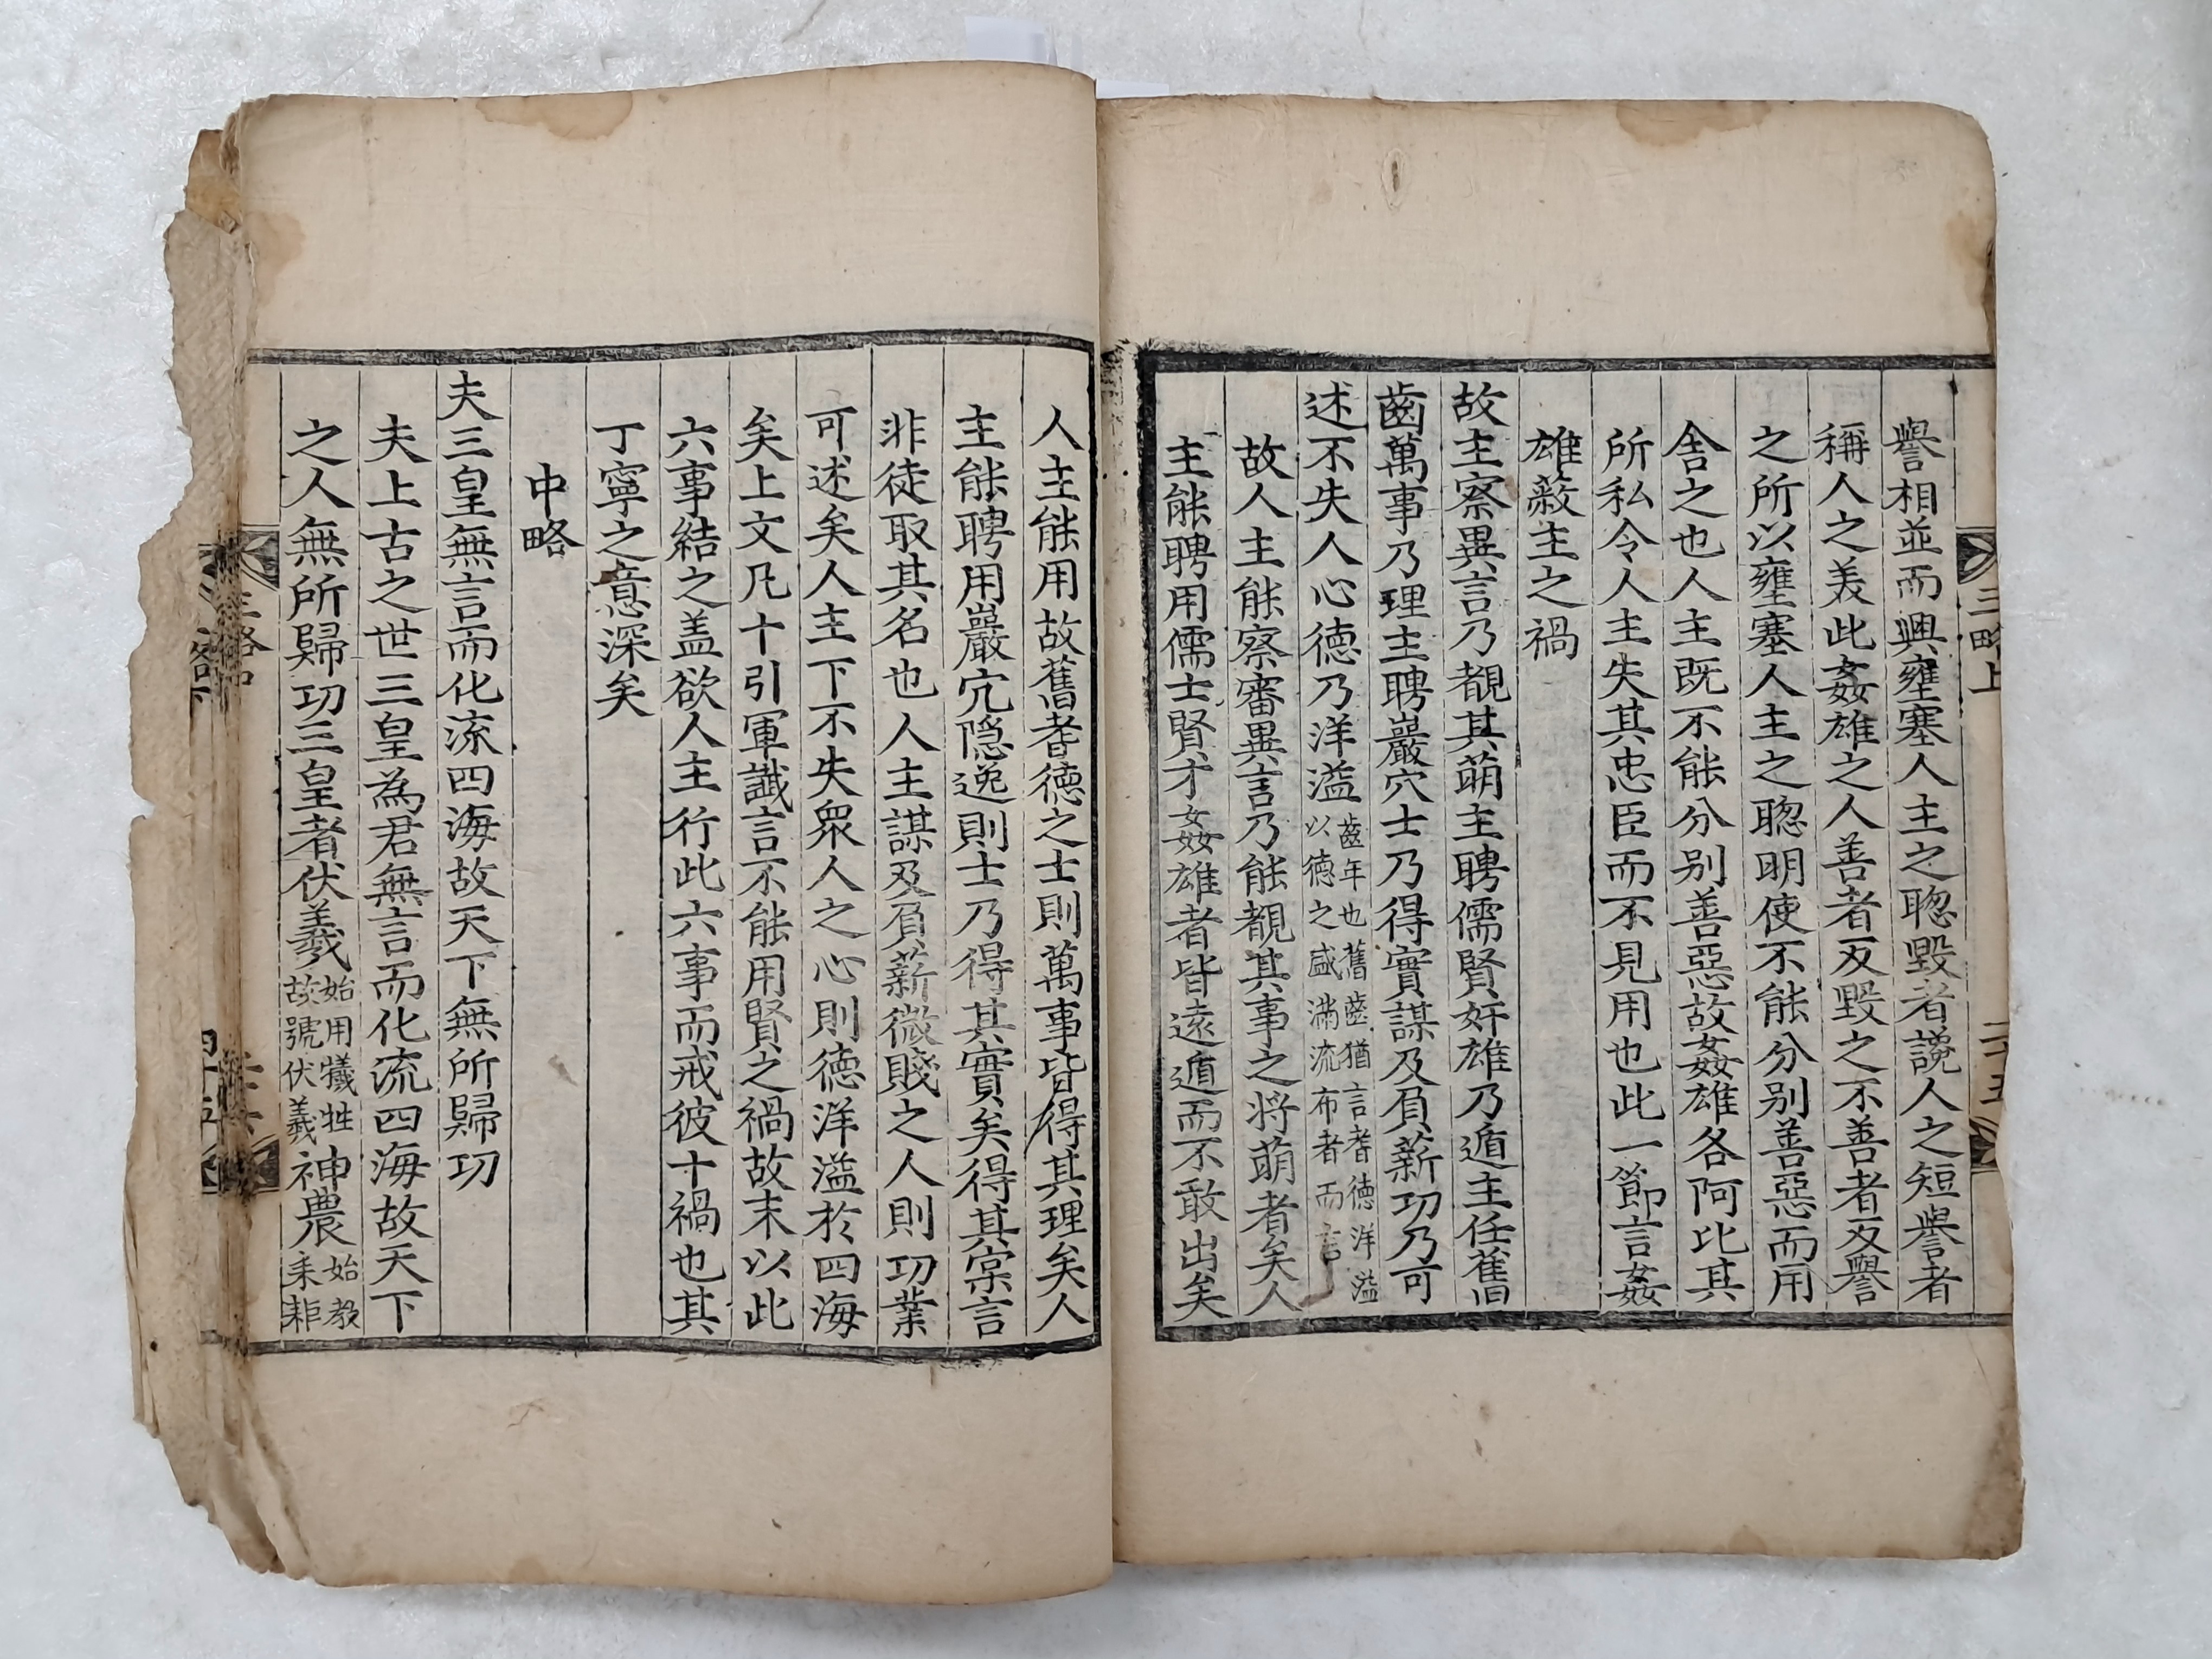 三略上
二十五
譽相並而興壅塞人主之聦毀者讒人之短譽者
稱人之美此姦雄之人善者反毀之不善者反譽
之所以壅塞人主之聦明使不能分别善惡而用
舎之也人主既不能分别善惡故姦雄各阿比其
所私令人主失其忠臣而不見用也此一節言姦
雄蔽主之禍
故主察異言乃覩其萌主聘儒賢奸雄乃遁主任舊
齒萬事乃理主聘巖穴士乃得實謀及負薪功乃可
述不失人心德乃洋溢齒年也舊齒猶言耆德洋溢以德之盛滿流布者而言
故人主能察審異言乃能覩其事之將萌者矣人
主能聘用儒士賢才姦雄者皆遠遁而不敢出矣
人主能用故舊耆德之士則萬事皆得其理矣人
主能聘用巖宂隐逸則士乃得其實矣得其寀言
非徒取其名也人主謀及負薪微賤之人則功業
可述矣人主下不失衆人之心則德洋溢於四海
矣上文凡十引軍讖言不能用賢之禍故末以此
六事結之盖欲人主行此六事而戒彼十禍也其
丁寧之意深矣
中略
夫三皇無言而化流四海故天下無所歸功
夫上古之世三皇為君無言而化流四海故天下
之人無所歸功三皇者伏羲始用犠牲故號伏羲神農始教耒耟